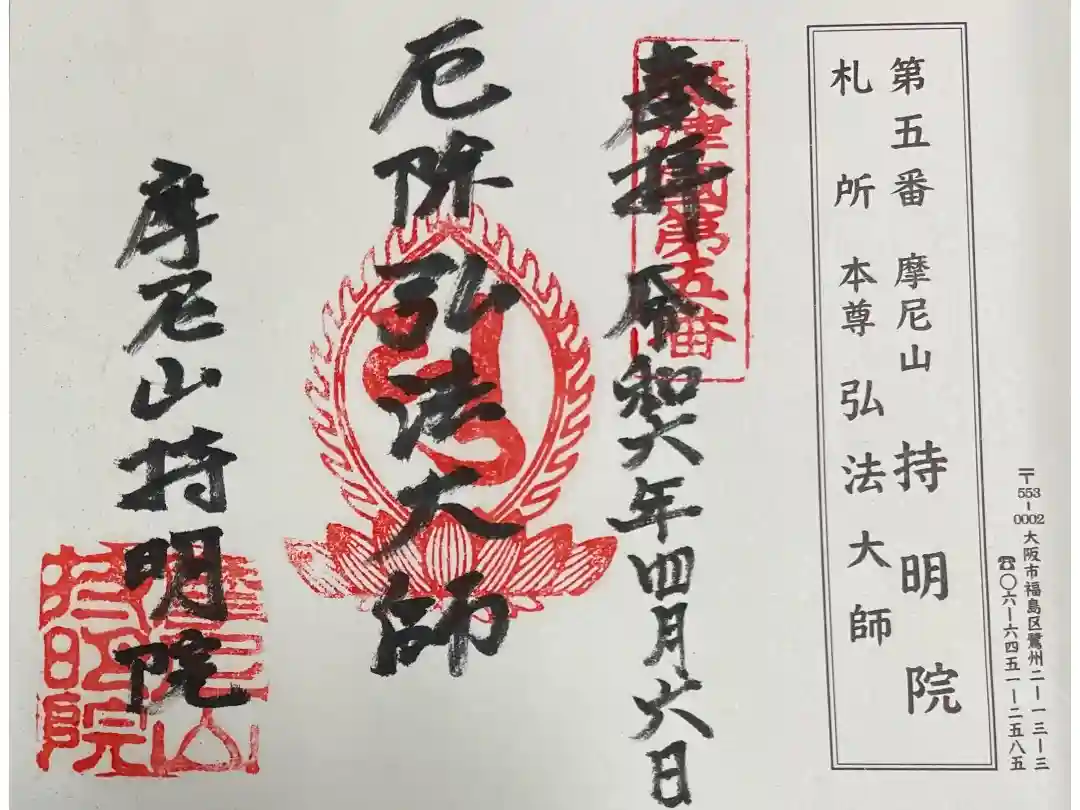 第五番 摩尼山 持明院
札所本尊 弘法大師
〒553-0002 大阪市福島区鷺州二ー一三ー三
☎〇六ー六四五一ー二五八五
奉拝 令和六年四月六日
摂津國第五番
厄除弘法大師
摩尼山持明院
摩尼山
持明院